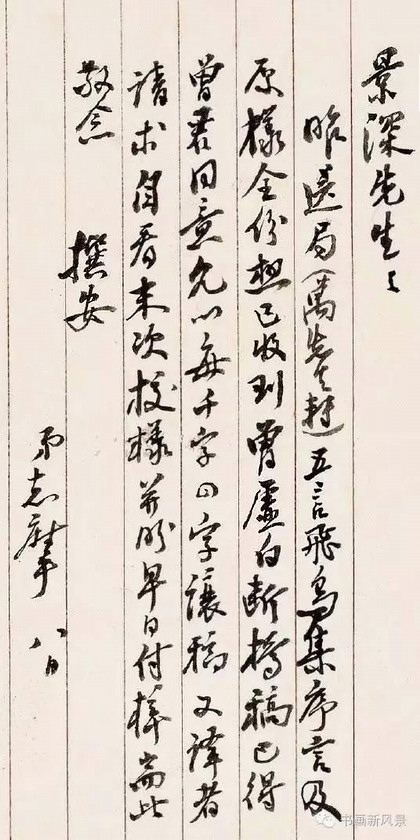 景深先生:
昨送局(萬先生轉)五言飛鳥集序言及
原樣全份想已收到曾虛白斷橋稿已得
曾君同意允以每千字四字讓稿又譯者
請求自看末次校樣並盼早日付梓耑此
敬念 撰安
弟志摩 八日
书画新风景